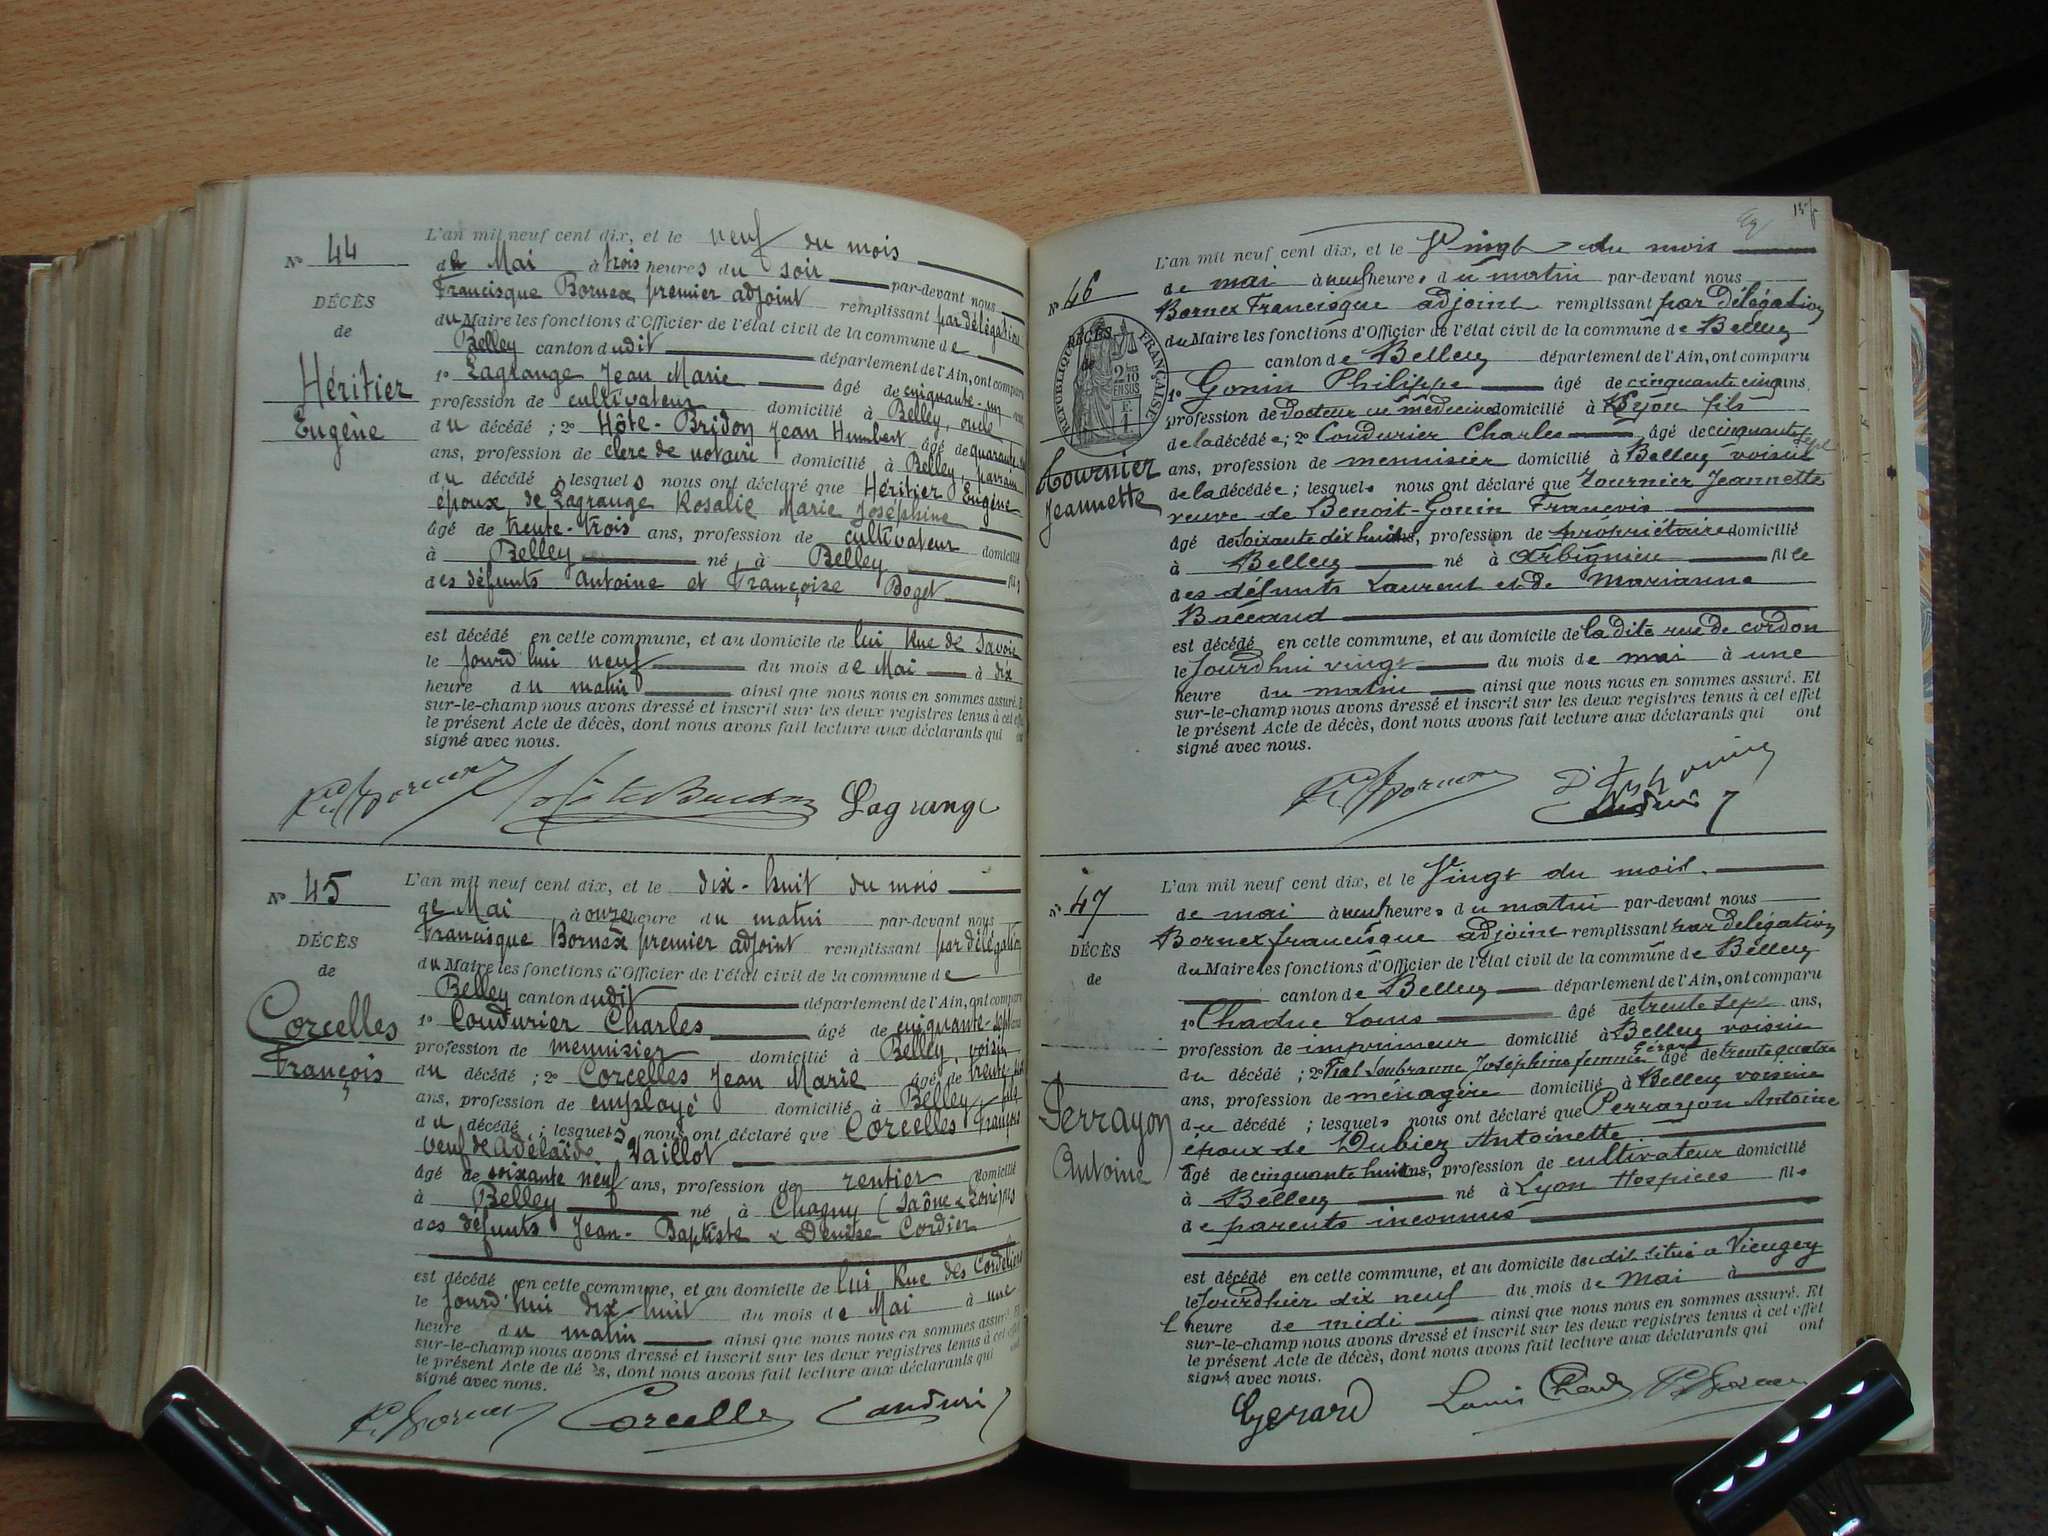 N° 44
DÉCÈS
de
Héritier
Eugène
L'an mil neuf cent dix, et le neuf du mois
de Mai à trois heures du soir par-devant nous
Francisque Bornex premier adjoint remplissant par délégation
du Maire les fonctions d'Officier de l'état civil de la commune de
Belley canton dudit département de l'Ain, ont comparu
1° Lagrange Jean Marie âgé de cinquante-un ans
profession de cultivateur domicilié à Belley, oncle
du décédé ; 2° Hôte-Bridon Jean Humbert âgé de quarante
ans, profession de clerc de notaire domicilié à Belley, parrain
du décédé lesquels nous ont déclaré que Héritier Eugène
époux de Lagrange Rosalie Marie Joséphine
âgé de trente-trois ans, profession de cultivateur domicilié
à Belley né à Belley fils
des défunts Antoine et Françoise Boget
est décédé en cette commune, et au domicile de lui Rue de Savoie
le jourd'hui neuf du mois de Mai à dix
heure du matin ainsi que nous nous en sommes assuré. Et
sur-le-champ nous avons dressé et inscrit sur les deux registres tenus à cet effet
le présent Acte de décès, dont nous avons fait lecture aux déclarants qui ont
signé avec nous.
Lagrange
N° 45
DÉCÈS
de
Corcelles
François
L'an mil neuf cent dix, et le dix-huit du mois
de Mai à onze heure du matin par-devant nous
Francisque Bornex premier adjoint remplissant par délégation
du Maire les fonctions d'Officier de l'état civil de la commune de
Belley canton dudit département de l'Ain, ont comparu
1° Coudurier Charles âgé de cinquante-sept ans
profession de menuisier domicilié à Belley, voisin
du décédé ; 2° Corcelles Jean Marie âgé de trente
ans, profession de employé domicilié à Belley, fils
du décédé ; lesquels nous ont déclaré que Corcelles François
veuf de Adélaïde Vaillot
âgé de soixante neuf ans, profession de rentier domicilié
à Belley né à Chagny (Saône & Loire) fils
des défunts Jean-Baptiste & Denise Cordier
est décédé en cette commune, et au domicile de lui Rue des Cordeliers
le jourd'hui dix-huit du mois de Mai à une
heure du matin ainsi que nous nous en sommes assuré. Et
sur-le-champ nous avons dressé et inscrit sur les deux registres tenus à cet effet
le présent Acte de décès, dont nous avons fait lecture aux déclarants qui ont
signé avec nous.
Corcelles
N° 46
DÉCÈS
de
RÉPUBLIQUE FRANÇAISE
Tournier
Jeannette
L'an mil neuf cent dix, et le Vingt du mois
de mai à neuf heures du matin par-devant nous
Bornex Francisque adjoint remplissant par délégation
du Maire les fonctions d'Officier de l'état civil de la commune de Belley
canton de Belley département de l'Ain, ont comparu
1° Gonin Philippe âgé de cinquante cinq ans,
profession de Docteur en médecine domicilié à Lyon fils
de la décédée ; 2° Coudurier Charles âgé de cinquante sept
ans, profession de menuisier domicilié à Belley voisin
de la décédée ; lesquels nous ont déclaré que Tournier Jeannette
veuve de Benoit-Gonin François
âgé de soixante dix huit ans, profession de propriétaire domicilié
à Belley né à Arbignieu fille
des défunts Laurent et de Marianne
Baccard
est décédé en cette commune, et au domicile de ladite rue de cordon
le jourdhui vingt du mois de mai à une
heure du matin ainsi que nous nous en sommes assuré. Et
sur-le-champ nous avons dressé et inscrit sur les deux registres tenus à cet effet
le présent Acte de décès, dont nous avons fait lecture aux déclarants qui ont
signé avec nous.
N° 47
DÉCÈS
de
Perrayon
Antoine
L'an mil neuf cent dix, et le Vingt du mois
de mai à neuf heures du matin par-devant nous
Bornex francisque adjoint remplissant par delégation
du Maire les fonctions d'Officier de l'état civil de la commune de Belley
canton de Belley département de l'Ain, ont comparu
1° Chaduc Louis âgé de trente sept ans,
profession de imprimeur domicilié à Belley voisin
du décédé ; 2° Vial Soubranne Joséphine femme Gérard âgé de trente quatre
ans, profession de ménagère domicilié à Belley voisine
du décédé ; lesquels nous ont déclaré que Perrayon Antoine
époux de Dubiez Antoinette
âgé de cinquante huit ans, profession de cultivateur domicilié
à Belley né à Lyon Hospices fils
de parents inconnus
est décédé en cette commune, et au domicile dudit situé a Vieugey
le jourdhier dix neuf du mois de mai à
l heure de midi ainsi que nous nous en sommes assuré. Et
sur-le-champ nous avons dressé et inscrit sur les deux registres tenus à cet effet
le présent Acte de décès, dont nous avons fait lecture aux déclarants qui ont
signé avec nous.
Gerard Louis Chaduc